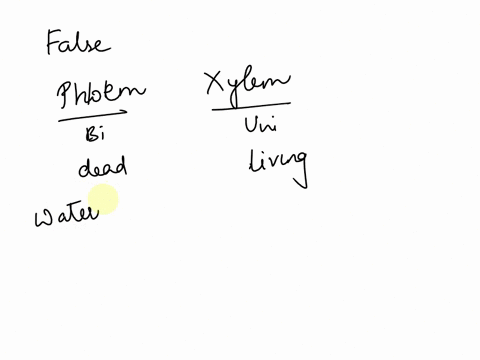 False
Phloem Xylem
Bi Uni
dead living
water